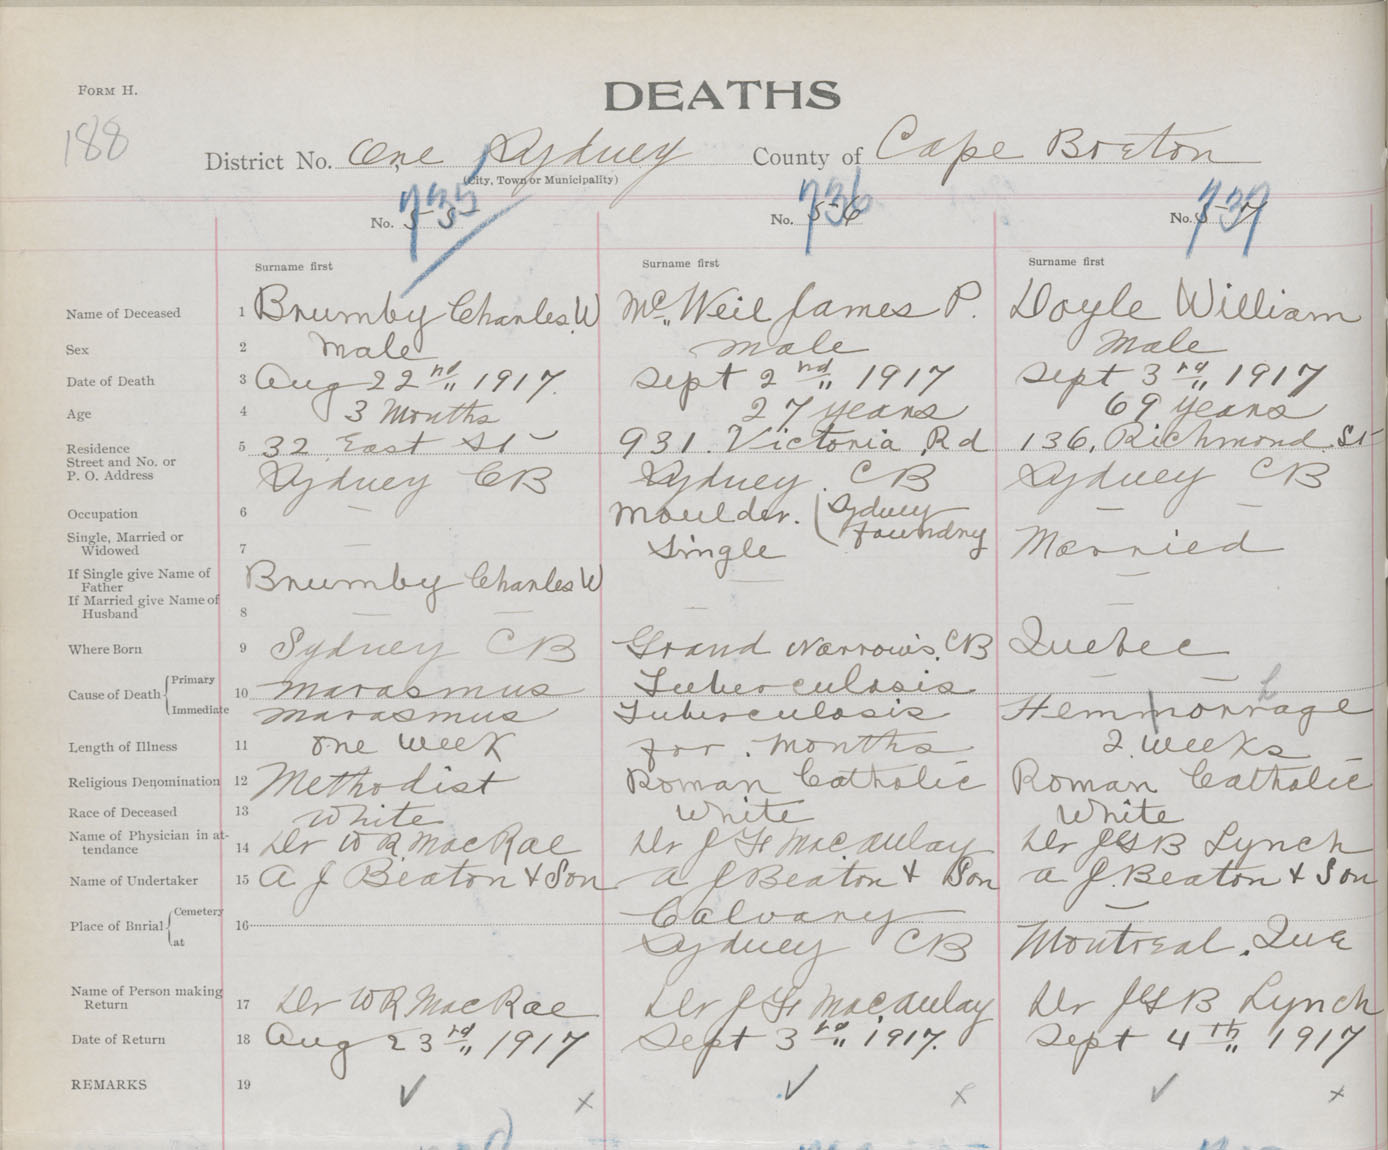 FORM H.
DEATHS
188
District No. One, Sydney County of Cape Breton
(City, Town or Municipality)
735 736 737
No. 55 No. 56 No. 57
Surname first Surname first Surname first
Name of Deceased 1 Brumby Charles. W McNeil James P. Doyle William
Sex 2 Male Male Male
Date of Death 3 Aug 22nd 1917. Sept 2nd 1917 Sept 3rd 1917
Age 4 3 Months 27 years 69 years
Residence 5 32 East St 931. Victoria Rd 136, Richmond St
Street and No. or
P. O. Address Sydney CB Sydney. CB Sydney CB
Occupation 6 — Moulder. (Sydney Foundry —
Single, Married or
Widowed 7 — Single Married
If Single give Name of
Father Brumby Charles W — —
If Married give Name of
Husband 8 — — — —
Where Born 9 Sydney CB Grand Narrows. CB Quebec
Cause of Death { Primary 10 Marasmus Tuberculosis — —
Immediate Marasmus Tuberculosis Hemmorrhage
Length of Illness 11 One Week for. Months 2 Weeks
Religious Denomination 12 Methodist Roman Catholic Roman Catholic
Race of Deceased 13 White White White
Name of Physician in at-
tendance 14 Dr W R MacRae Dr J F MacAulay Dr J G B Lynch
Name of Undertaker 15 A J Beaton & Son A J Beaton & Son A J. Beaton & Son
Place of Bnrial { Cemetery 16 Calvary —
at Sydney CB Montreal. Que
Name of Person making
Return 17 Dr W R MacRae Dr J F MacAulay Dr J G B Lynch
Date of Return 18 Aug 23rd 1917 Sept 3rd 1917. Sept 4th 1917
REMARKS 19 ✓ x ✓ x ✓ x